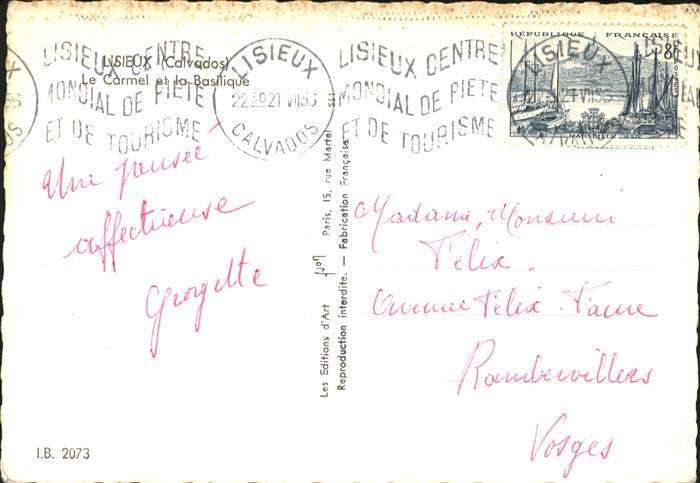 LISIEUX (Calvados)
Le Carmel et la Basilique
LISIEUX CENTRE
MONDIAL DE PIETE
ET DE TOURISME
LISIEUX
CALVADOS
LISIEUX CENTRE
MONDIAL DE PIETE
ET DE TOURISME
RÉPUBLIQUE FRANÇAISE
8F
LISIEUX
Une pensée
affectueuse
Georgette
Les Editions d'Art Paris, 15, rue Martel
Reproduction interdite. — Fabrication Française
Madame, Monsieur
Félix
Avenue Félix Faure
Rambervillers
Vosges
I.B. 2073